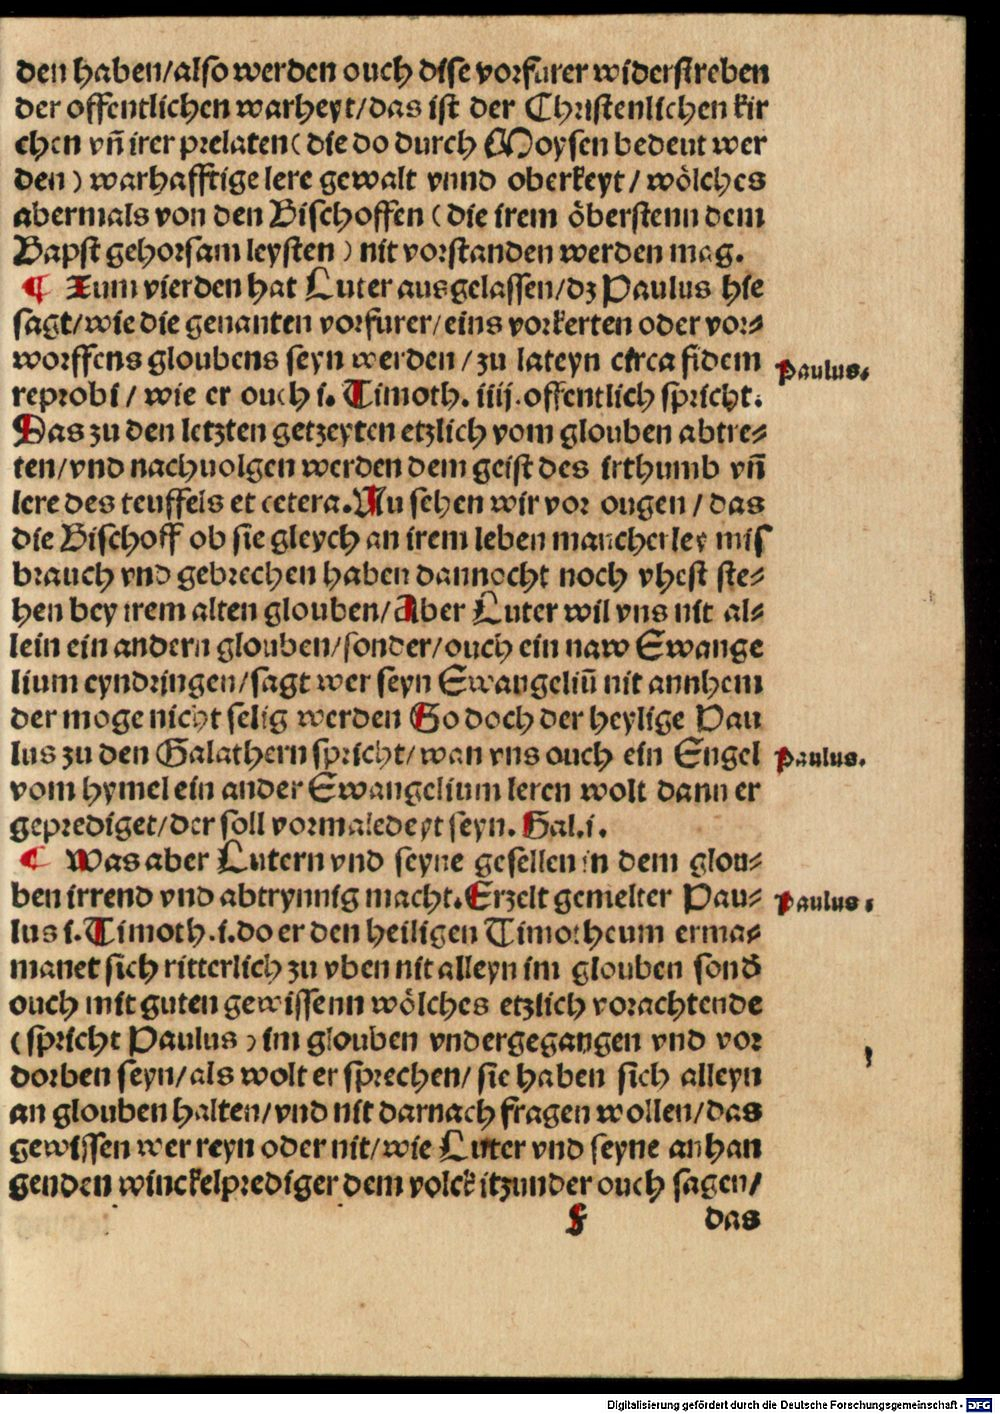 den haben/also werden ouch dise vorfurer widerstreben
der offentlichen warheyt/das ist der Christenlichen kir
chen vñ irer prelaten(die do durch Moysen bedeut wer
den) warhafftige lere gewalt vnnd oberkeyt/wölches
abermals von den Bischoffen (die irem öberstenn dem
Bapst gehorsam leysten) nit vorstanden werden mag.
¶ Zum vierden hat Luter ausgelassen/dz Paulus hie
sagt/wie die genanten vorfurer/eins vorkerten oder vor⸗
worffens gloubens seyn werden/zu lateyn circa fidem
Paulus.
reprobi/wie er ouch i. Timoth. iiij. offentlich spricht.
Das zu den letzten getzeyten etzlich vom glouben abtre⸗
ten/vnd nachuolgen werden dem geist des irthumb vñ
lere des teuffels et cetera. Nu sehen wir vor ougen/das
die Bischoff ob sie gleych an irem leben mancherley mis
brauch vnd gebrechen haben dannocht noch vhest ste⸗
hen bey irem alten glouben/Aber Luter wil vns nit al⸗
lein ein andern glouben/sonder/ouch ein naw Ewange
lium eyndringen/sagt wer seyn Ewangeliũ nit annhem
der moge nicht selig werden So doch der heylige Pau
lus zu den Galathern spricht/wan vns ouch ein Engel
Paulus.
vom hymel ein ander Ewangelium leren wolt dann er
geprediget/der soll vormaledeyt seyn. Gal.i.
¶ Was aber Lutern vnd seyne gesellen in dem glou⸗
ben irrend vnd abtrynnig macht. Erzelt gemelter Pau⸗
Paulus.
lus i. Timoth.i.do er den heiligen Timotheum erma⸗
manet sich ritterlich zu vben nit alleyn im glouben sond̄
ouch mit guten gewissenn wölches etzlich vorachtende
(spricht Paulus) im glouben vndergegangen vnd vor
dorben seyn/als wolt er sprechen/sie haben sich alleyn
an glouben halten/vnd nit darnach fragen wollen/das
gewissen wer reyn oder nit/wie Luter vnd seyne anhan
genden winckelprediger dem volck itzunder ouch sagen/
f das
Digitalisierung gefördert durch die Deutsche Forschungsgemeinschaft - DFG